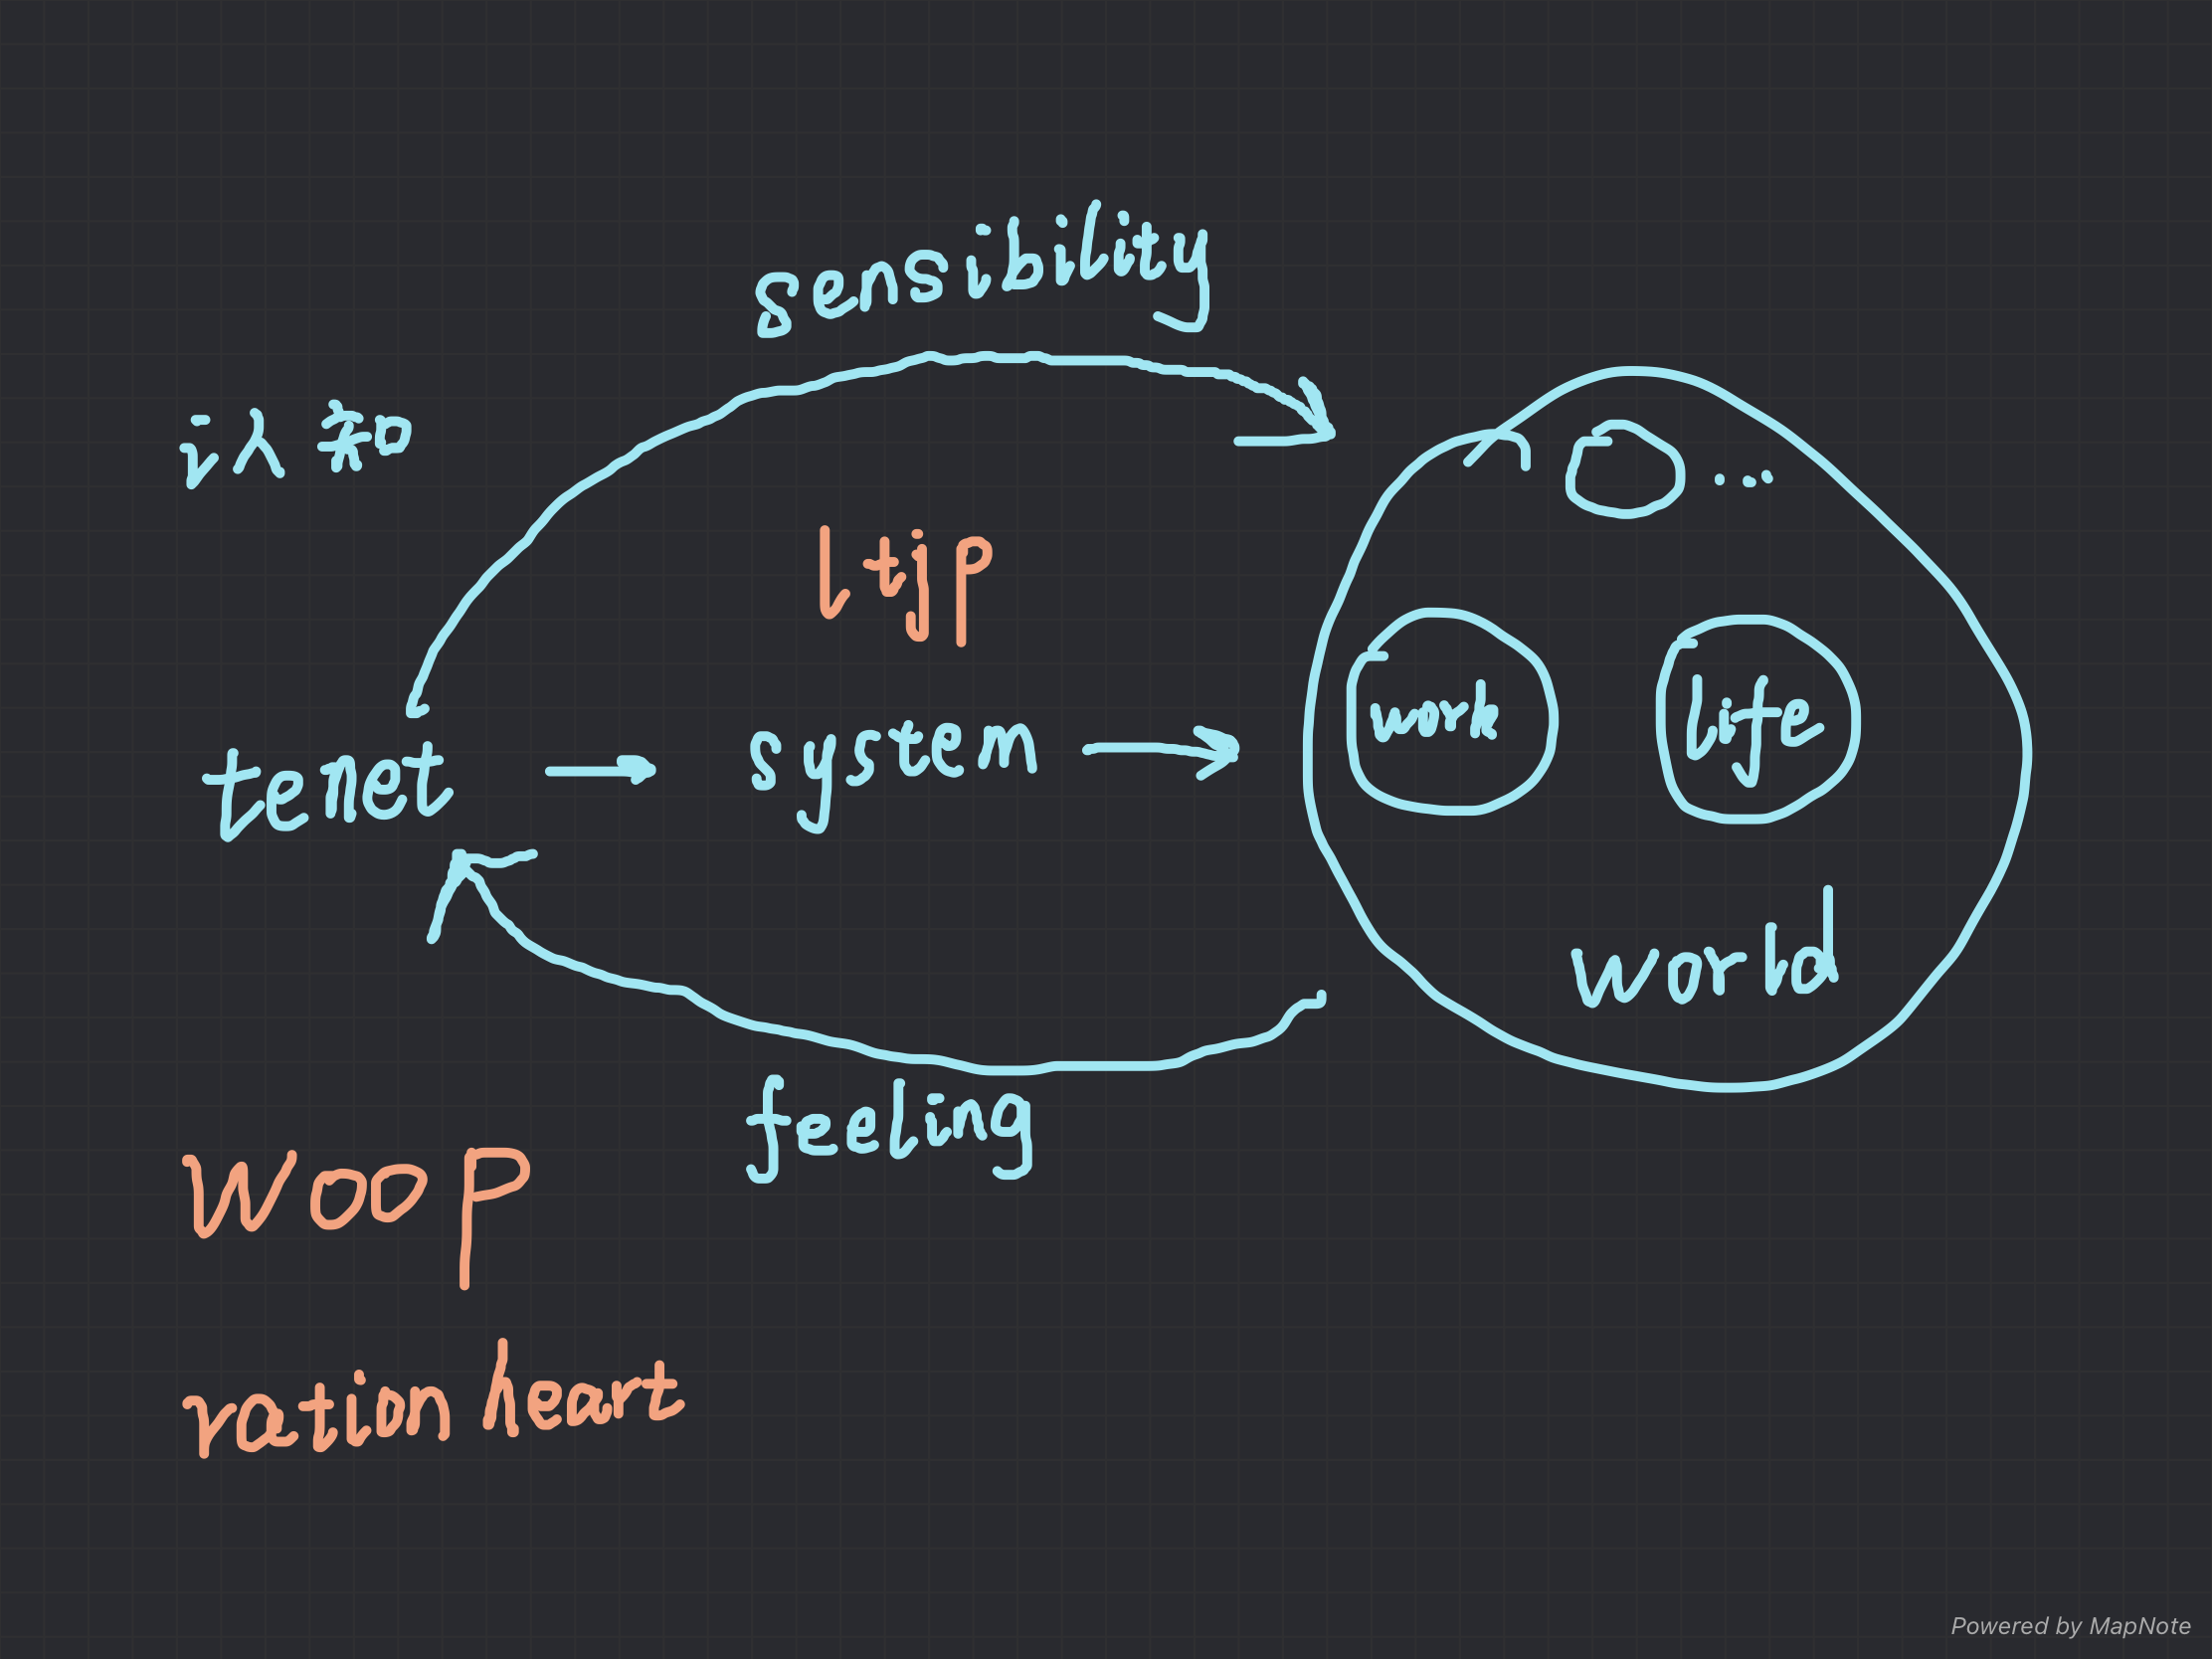 sensibility
认知
ltjp
tenet → system →
work
life
...
world
feeling
woop
ration heart
Powered by MapNote